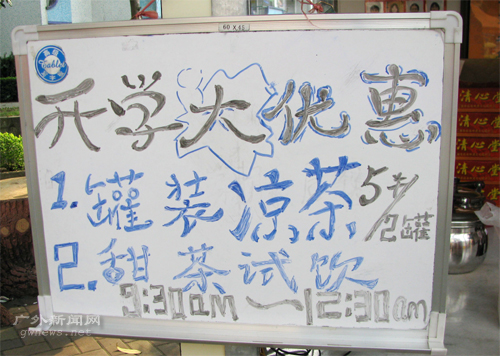 60 X 45
开学大优惠
1. 罐装凉茶 5元/2罐
2. 甜茶试饮
9:30am—12:30am
清心堂
广外新闻网
gwnews.net